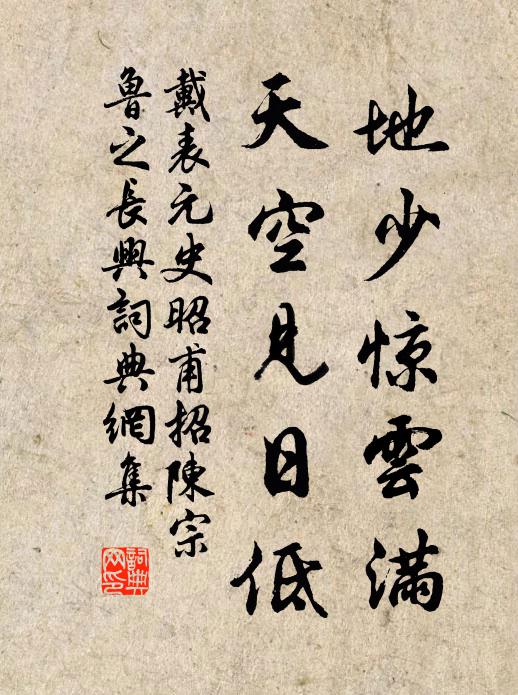 地少惊雲滿
天空見日低
戴表元史昭甫招陳宗
魯之長興詞典網集
詞典网印